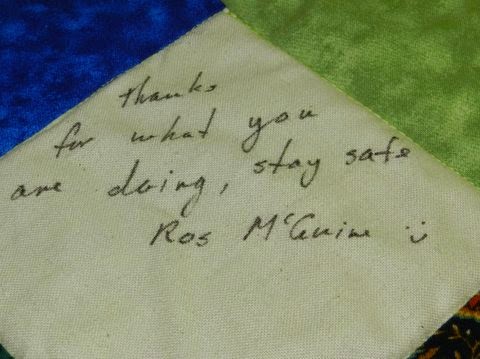 thanks
for what you
are doing, stay safe
Ros McGuire :)